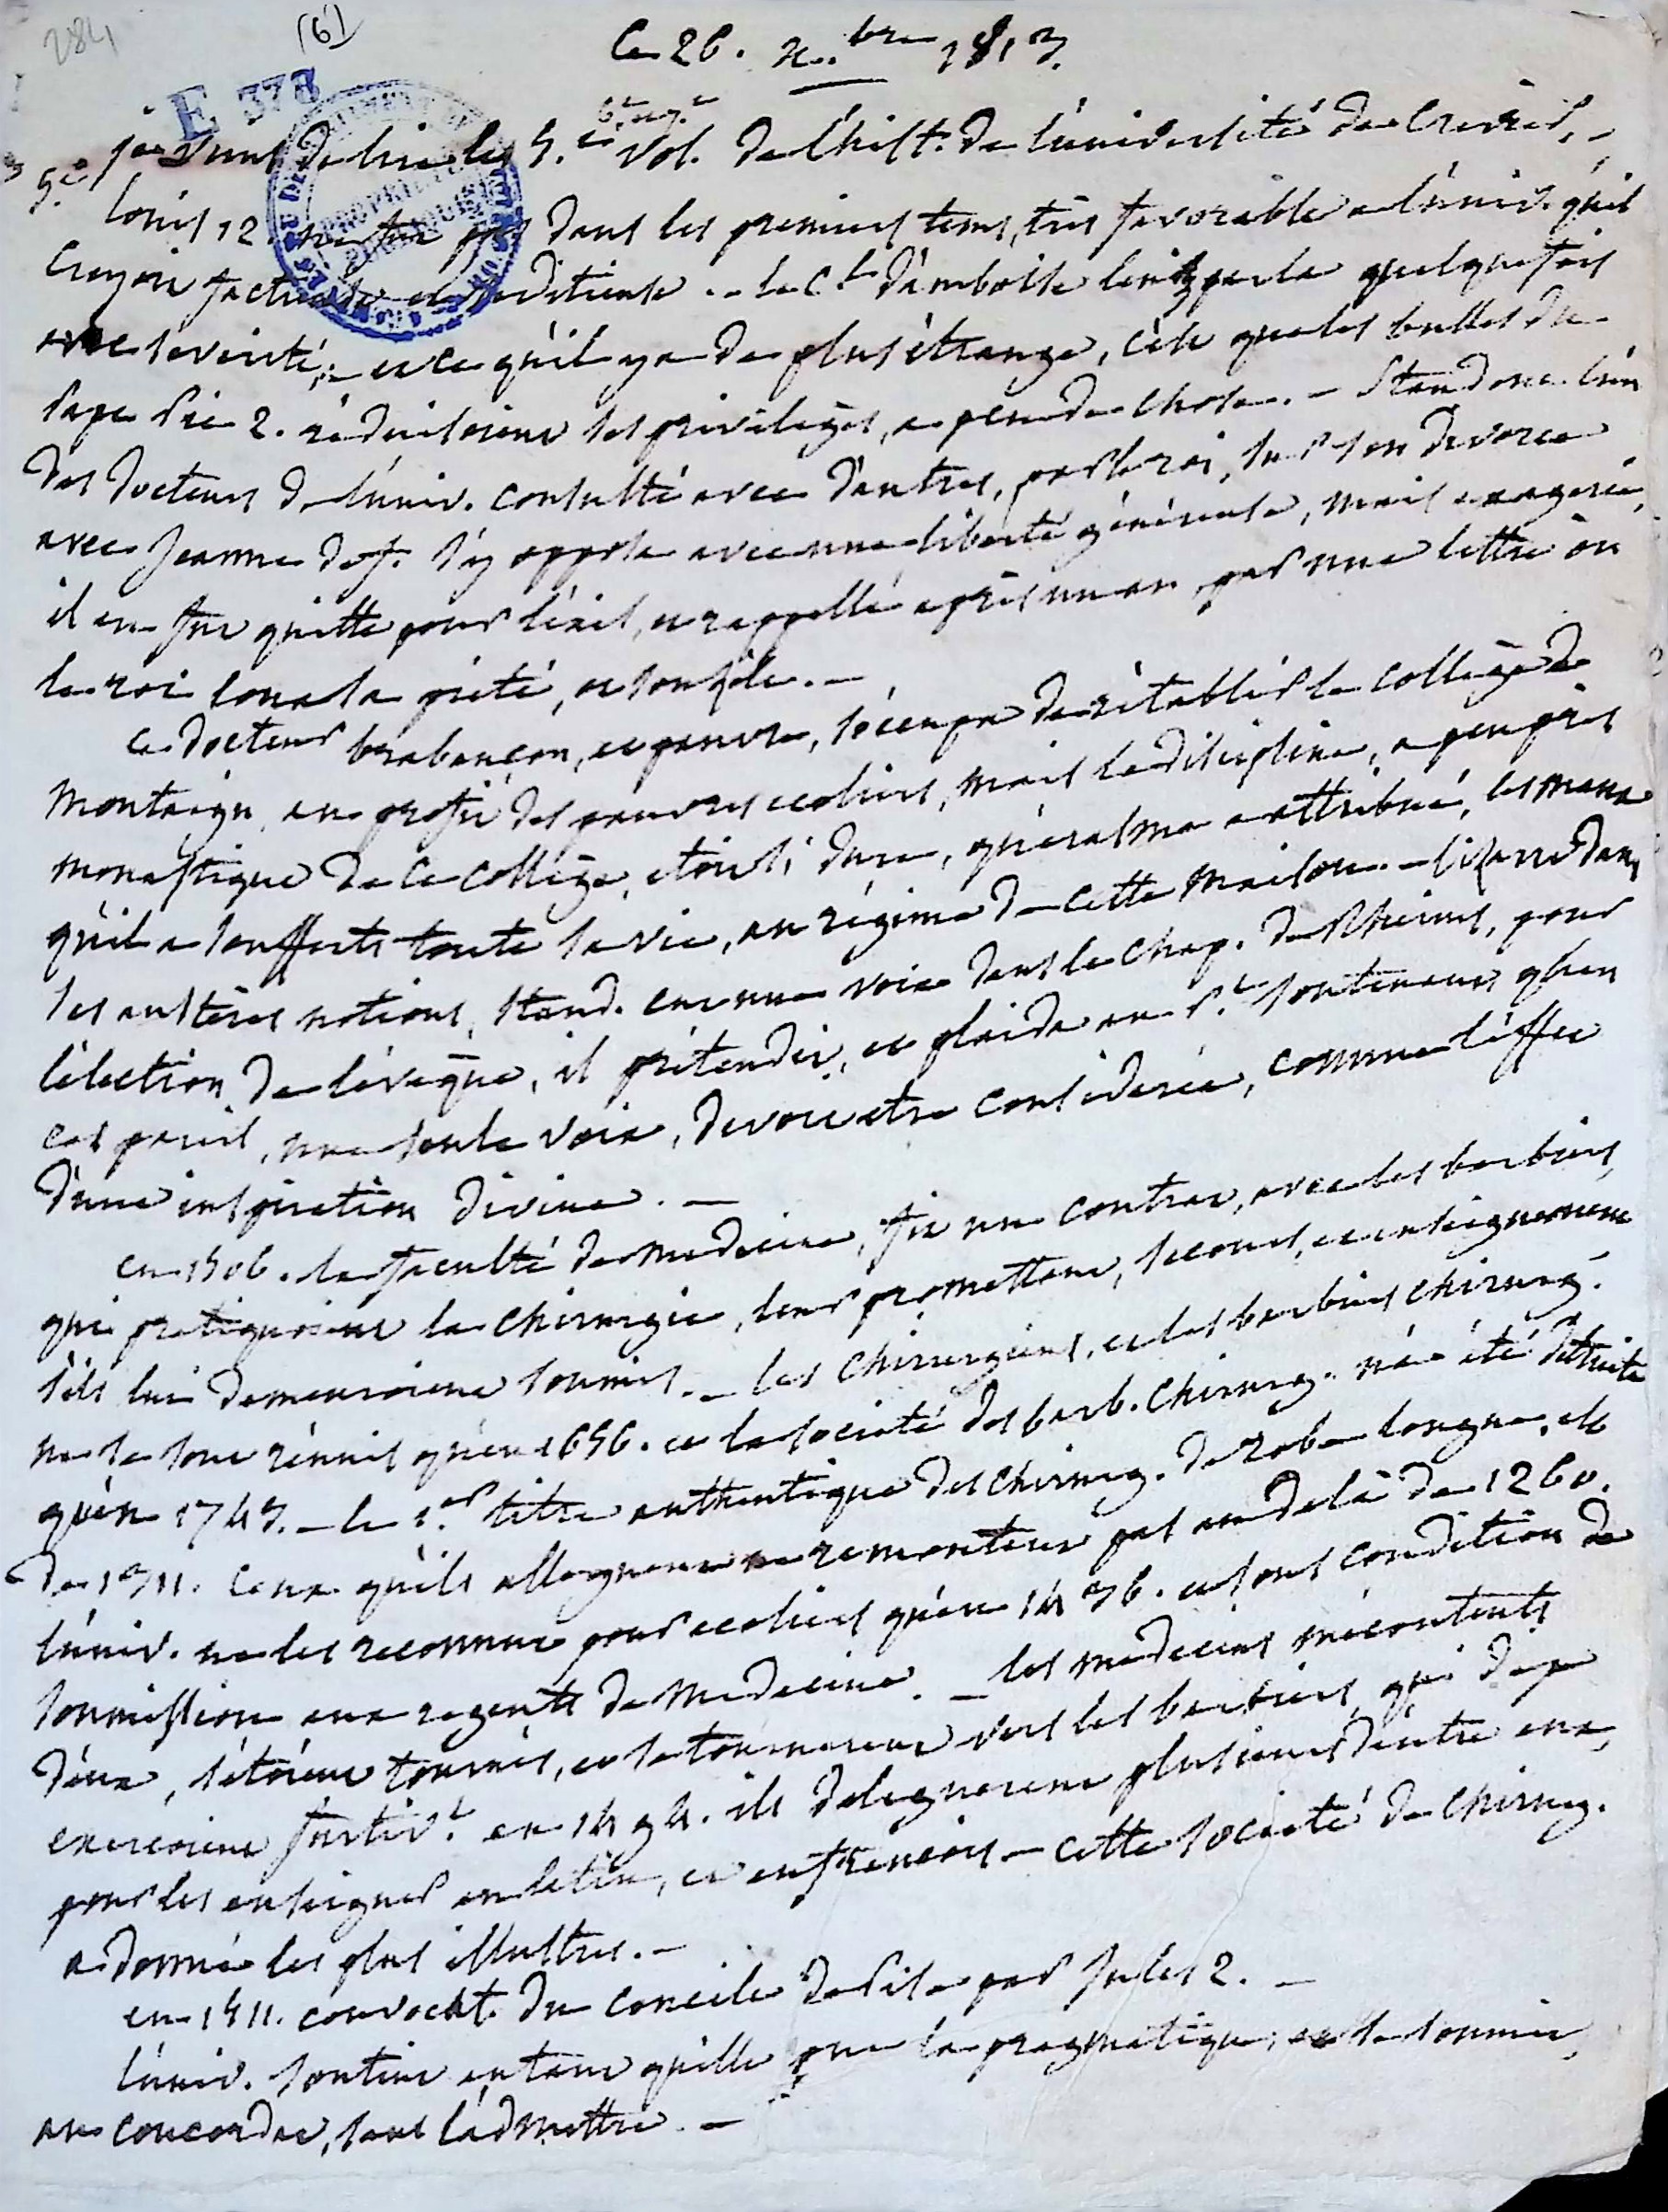 284
(6)
Ce 26. 9.bre 1813.
E 378
6.e 7.e
5.e je viens de lire les 5.e vol. de l'hist. de l'université de Crevier. -
Louis 12. ne fut pas dans les premiers tems, très favorable a l'univ. qu'il
croyoit factieuse et séditieuse. - le C.l d'amboise leur parla quelquefois
avec severité; - et ce qu'il y a de plus étrange, c'est que les bulles du
Pape Pie 2. réduisoient ses privilèges, a peu de chose. - Standonc l'un
des docteurs de l'univ. consulté avec d'autres, par le roi, sur son divorce
avec Jeanne de f. s'y opposa avec une liberté généreuse, mais exagerée,
il en fut quitte pour l'exil, et rappellé après un an par une lettre où
le roi loua sa piété, et son zèle. -
ce docteur brabançon, et pauvre, s'occupa de rétablir le collège de
Montaigu, au profit des pauvres ecoliers, mais la discipline, a peu près
monastique de ce collège, etoit si dure, qu'erasme a attribué, les maux
qu'il a soufferts toute sa vie, au régime de cette maison. - bizarre dans
ses austères notions, Stand. eut une voix dans le chap. de Rheims, pour
l'élection de l'évêque, il prétendit, et plaida au P.t soutenant qu'en
cas pareil, une seule voix, devoit etre considerée, comme l'effet
d'une inspiration divine. -
en 1506. la faculté de medecine, fit un contrat, avec les barbiers
qui pratiquoient la chirurgie, leur promettant, secours, et enseignement
s'ils lui demeuroient soumis. - les chirurgiens, et les barbiers chirurg.
ne se sont réunis qu'en 1656. et la societé des barb. chirurg. n'a été détruite
qu'en 1743. - le 1.er titre authentique des chirurg. de robe longue, est
de 1311. ceux qu'ils alleguent ne remontent pas au delà de 1260.
l'univ. ne les reconnut pour ecoliers qu'en 1436. et sous condition de
soumission aux regents de medecine. - les medecins mécontents
d'eux, s'étoient tournés, et se tournerent vers les barbiers, qui deja
exercoient furtiv.t en 1494. ils deleguerent plusieurs d'entre eux,
pour les enseigner en latin, et en françois - cette societé de chirurg.
a donné les plus illustres. -
en 1511. convocat. du concile de Pise par Jules 2. -
l'univ. soutint autant qu'elle put la pragmatique, et se soumit,
au concordat, sans l'admettre. -